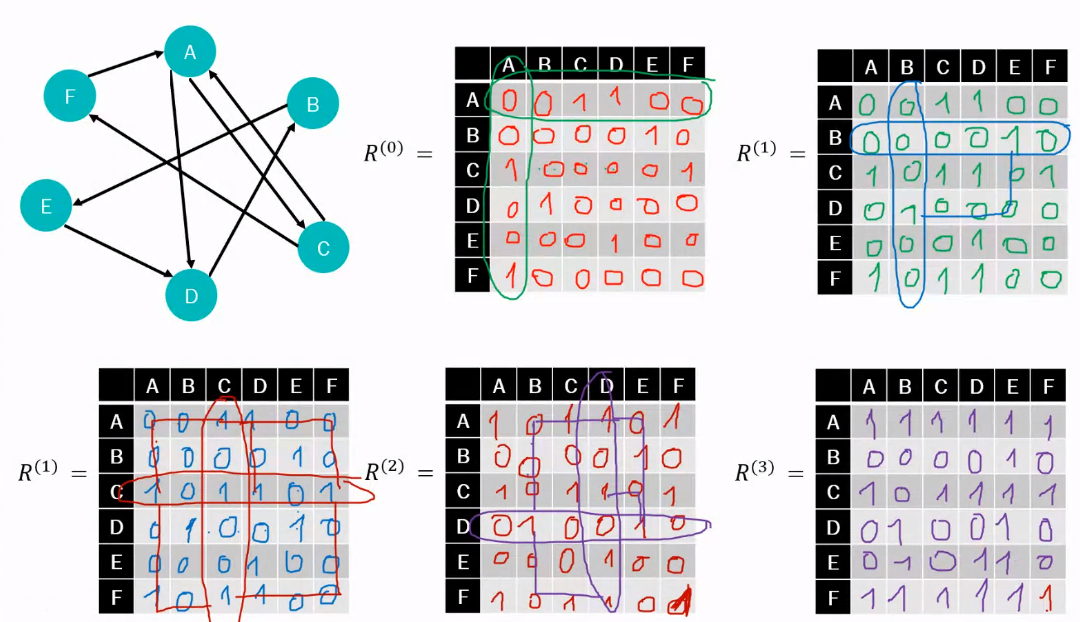 A
F
B
E
C
D
A B C D E F
A 0 0 1 1 0 0
B 0 0 0 0 1 0
R(0) =
C 1 0 0 0 0 1
D 0 1 0 0 0 0
E 0 0 0 1 0 0
F 1 0 0 0 0 0
A B C D E F
A 0 0 1 1 0 0
B 0 0 0 0 1 0
R(1) =
C 1 0 1 1 0 1
D 0 1 0 0 0 0
E 0 0 0 1 0 0
F 1 0 1 1 0 0
A B C D E F
A 0 0 1 1 0 0
B 0 0 0 0 1 0
R(1) =
C 1 0 1 1 0 1
D 0 1 0 0 1 0
E 0 0 0 1 0 0
F 1 0 1 1 0 0
A B C D E F
A 1 0 1 1 0 1
B 0 0 0 0 1 0
R(2) =
C 1 0 1 1 0 1
D 0 1 0 0 1 0
E 0 0 0 1 0 0
F 1 0 1 1 0 1
A B C D E F
A 1 1 1 1 1 1
B 0 0 0 0 1 0
R(3) =
C 1 0 1 1 1 1
D 0 1 0 0 1 0
E 0 1 0 1 1 0
F 1 1 1 1 1 1